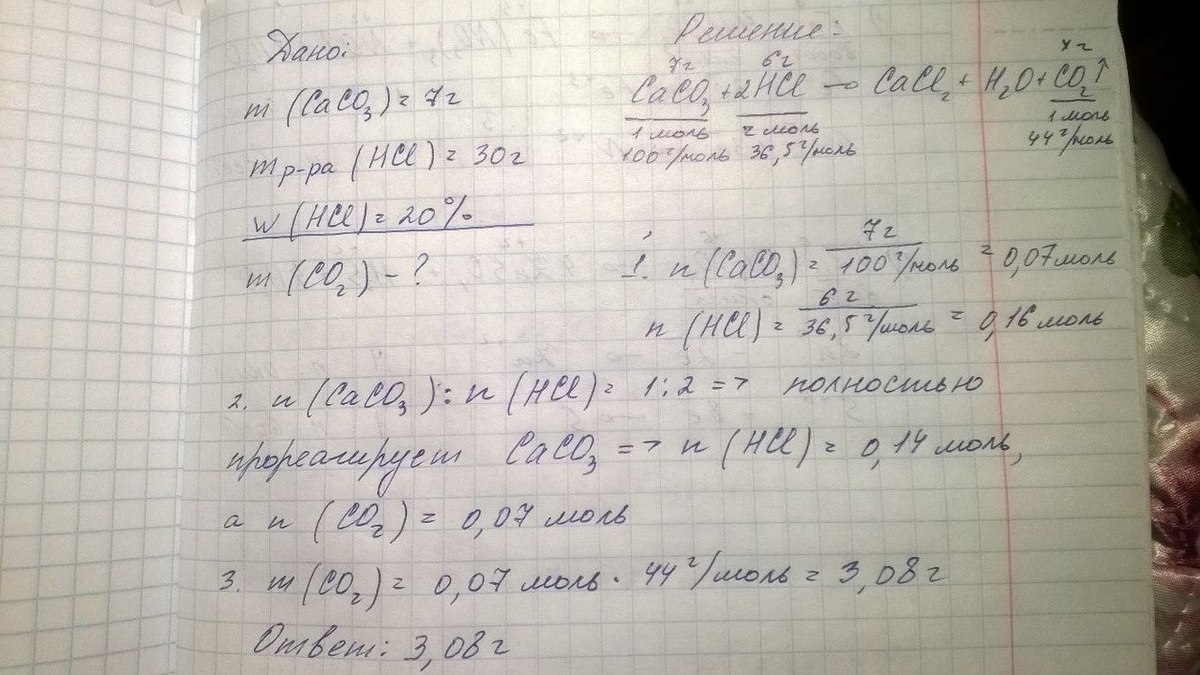 Дано:
m (CaCO₃) = 7г
m р-ра (HCl) = 30г
w (HCl) = 20%
m (CO₂) - ?
Решение:
7г 6г xг
CaCO₃ + 2HCl → CaCl₂ + H₂O + CO₂↑
1 моль 2 моль 1 моль
100 г/моль 36,5 г/моль 44 г/моль
1. n (CaCO₃) = 7г / 100 г/моль = 0,07 моль
n (HCl) = 6 г / 36,5 г/моль = 0,16 моль
2. n (CaCO₃) : n (HCl) = 1:2 => полностью
прореагирует CaCO₃ => n (HCl) = 0,14 моль,
а n (CO₂) = 0,07 моль
3. m (CO₂) = 0,07 моль · 44 г/моль = 3,08 г
Ответ: 3,08 г